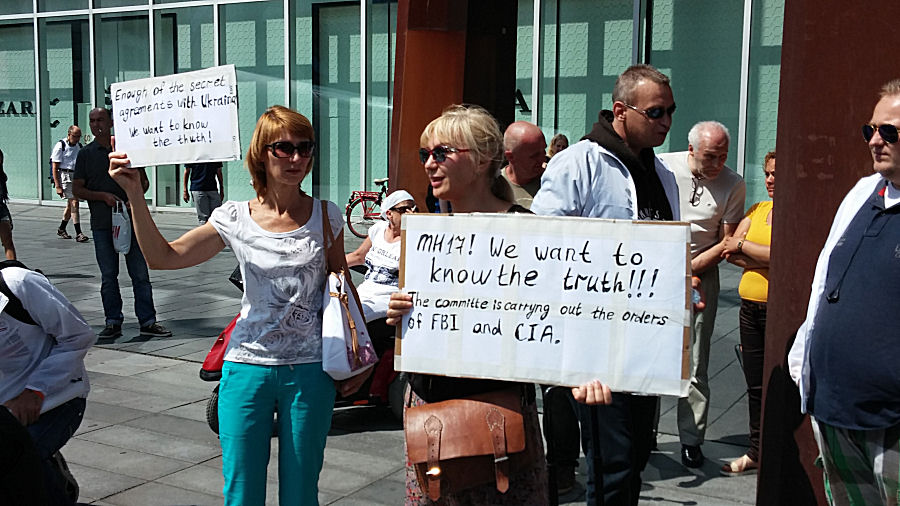 Enough of the secret
agreements with Ukraina
We want to know
the thuth!
MH17! We want to
know the truth!!!
The committe is carryng out the orders
of FBI and CIA.